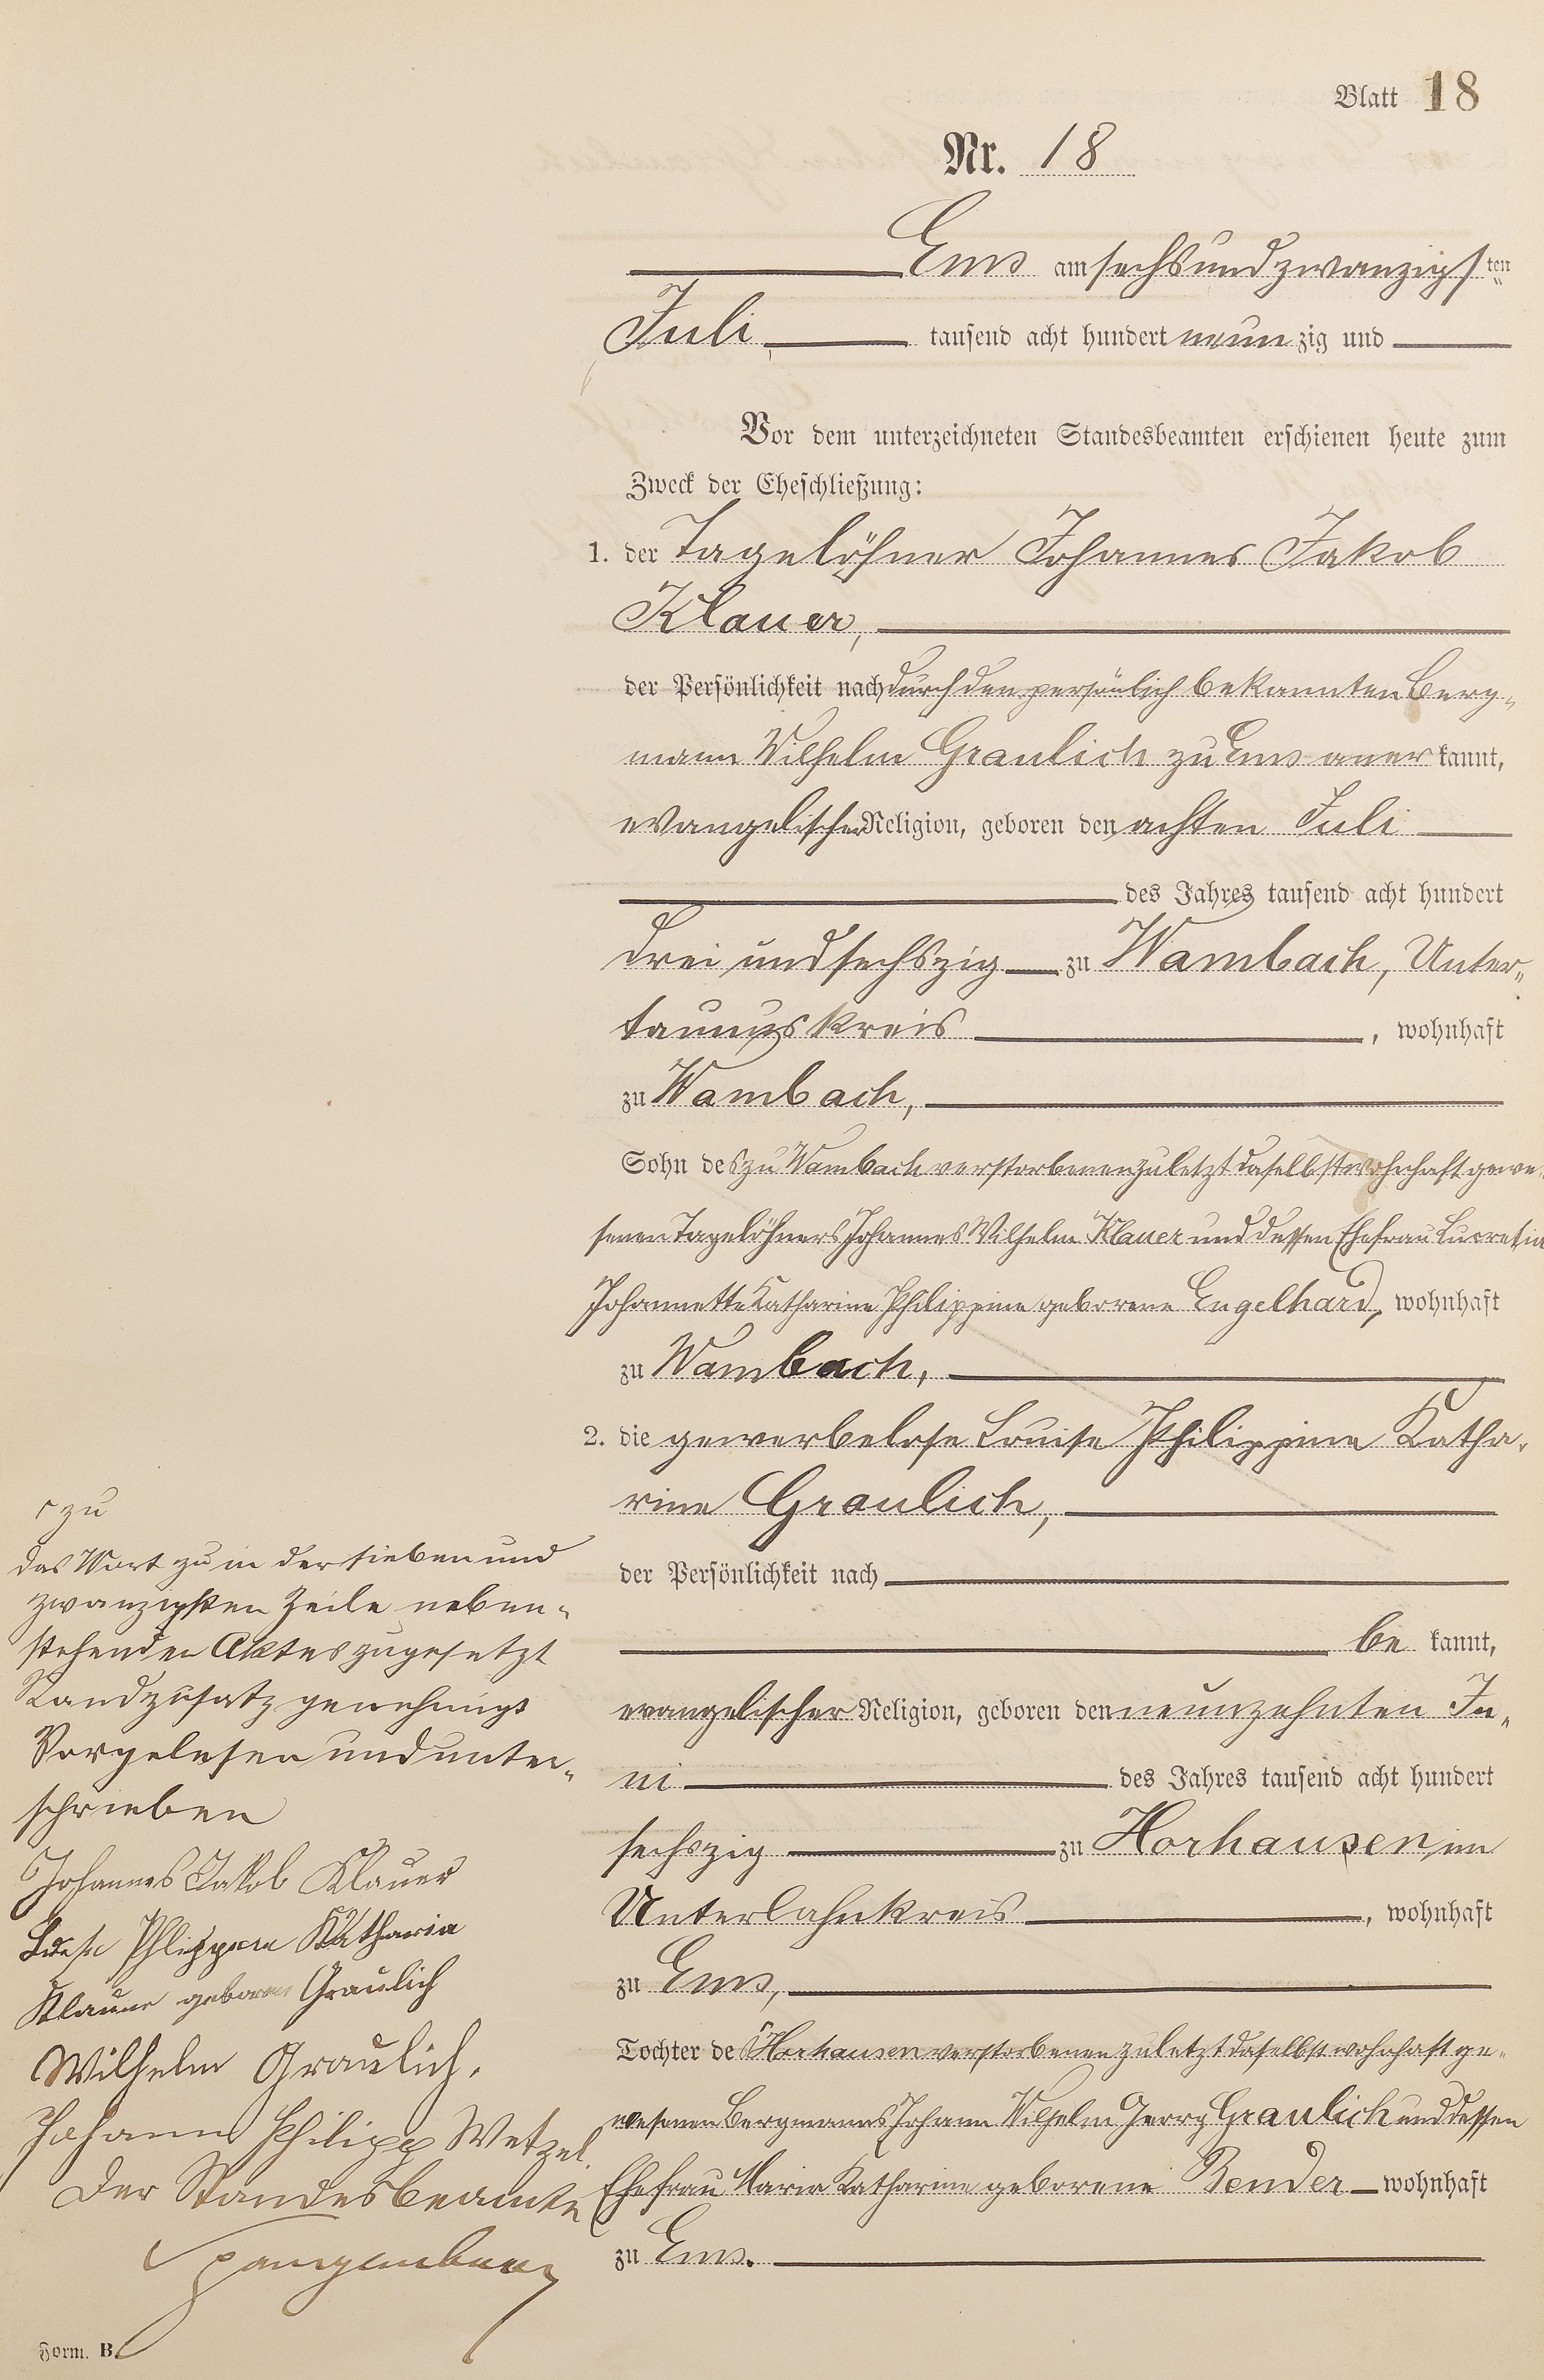 Blatt 18
Nr. 18
Ems am sechsundzwanzigsten
Juli, tausend acht hundert neunzig und
Vor dem unterzeichneten Standesbeamten erschienen heute zum
Zweck der Eheschließung:
1. der Tagelöhner Johannes Jakob
Klauer,
der Persönlichkeit nach durch den persönlich bekannten Berg-
mann Wilhelm Graulich zu Ems anerkannt,
evangelischer Religion, geboren den achten Juli
des Jahres tausend acht hundert
drei und sechszig zu Wambach, Unter-
taunuskreis, wohnhaft
zu Wambach,
Sohn des zu Wambach verstorbenen zuletzt daselbst wohnhaft gewe-
senen Tagelöhners Johannes Wilhelm Klauer und dessen Ehefrau Lucretia
Johannette Katharine Philippine geborene Engelhard, wohnhaft
zu Wambach,
2. die gewerbelose Louise Philippine Katha-
rine Graulich,
der Persönlichkeit nach
bekannt,
evangelischer Religion, geboren den neunzehnten Ju-
ni des Jahres tausend acht hundert
sechszig zu Horhausen, im
Unterlahnkreis, wohnhaft
zu Ems,
Tochter des Horhausen verstorbenen zuletzt daselbst wohnhaft ge-
wesenen Bergmanns Johann Wilhelm Georg Graulich und dessen
Ehefrau Maria Katharine geborene Bender wohnhaft
zu Ems.
zu
das Wort zu in der sieben und
zwanzigsten Zeile neben-
stehenden Aktes zugesetzt
Randzusatz genehmigt
Vorgelesen und unter-
schrieben
Johannes Jakob Klauer
Philippene Katharia
Klauer geborene Graulich
Wilhelm Graulich.
Johann Philipp Wetzel.
Der Standesbeamte
Spangenberg
Form. B.